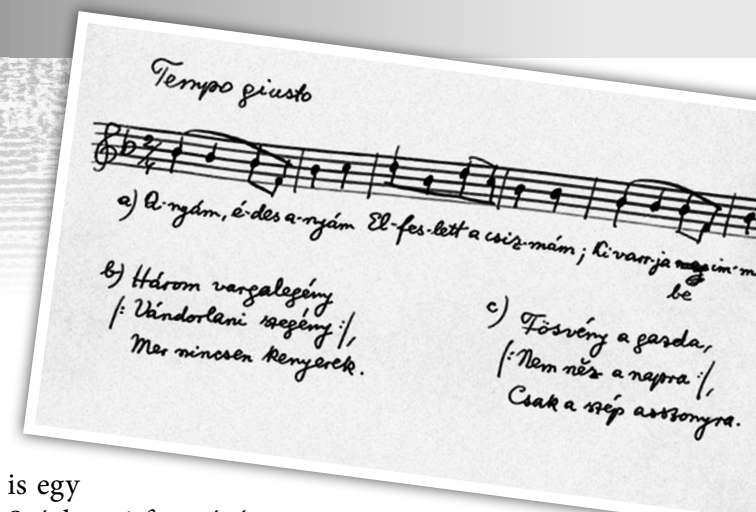 Tempo giusto
2/4
a) A-nyám, é-des a-nyám El-fes-lett a csiz-mám; Ki varr-ja meg im-m
be
b) Három vargalegény
/: Vándorlani szegény :/,
Mer nincsen kenyerek.
c) Fösvény a gazda,
/: Nem néz a napra :/,
Csak a szép asszonyra.
is egy